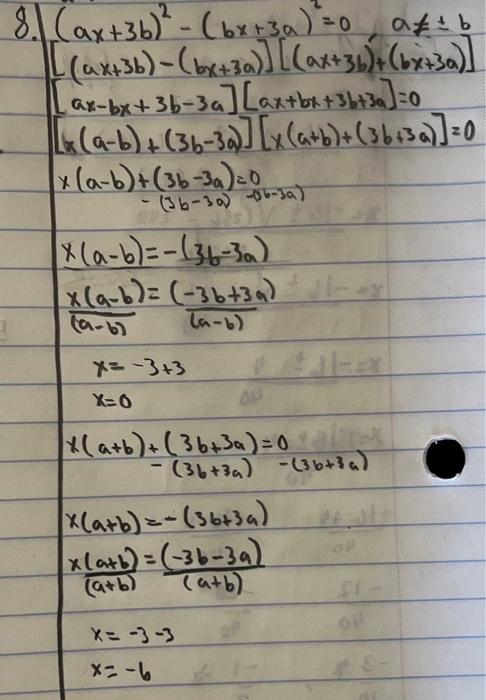 8. (ax+3b)² - (bx+3a)²=0, a≠ ± b
[(ax+3b)-(bx+3a)][(ax+3b)+(bx+3a)]
[ax-bx+3b-3a][ax+bx+3b+3a]=0
[x(a-b)+(3b-3a)][x(a+b)+(3b+3a)]=0
x(a-b)+(3b-3a)=0
-(3b-3a) -(3b-3a)
x(a-b)=-(3b-3a)
x(a-b)=(-3b+3a)
(a-b) (a-b)
x= -3+3
x=0
x(a+b)+(3b+3a)=0
-(3b+3a) -(3b+3a)
x(a+b)=-(3b+3a)
x(a+b)=(-3b-3a)
(a+b) (a+b)
x= -3-3
x= -6